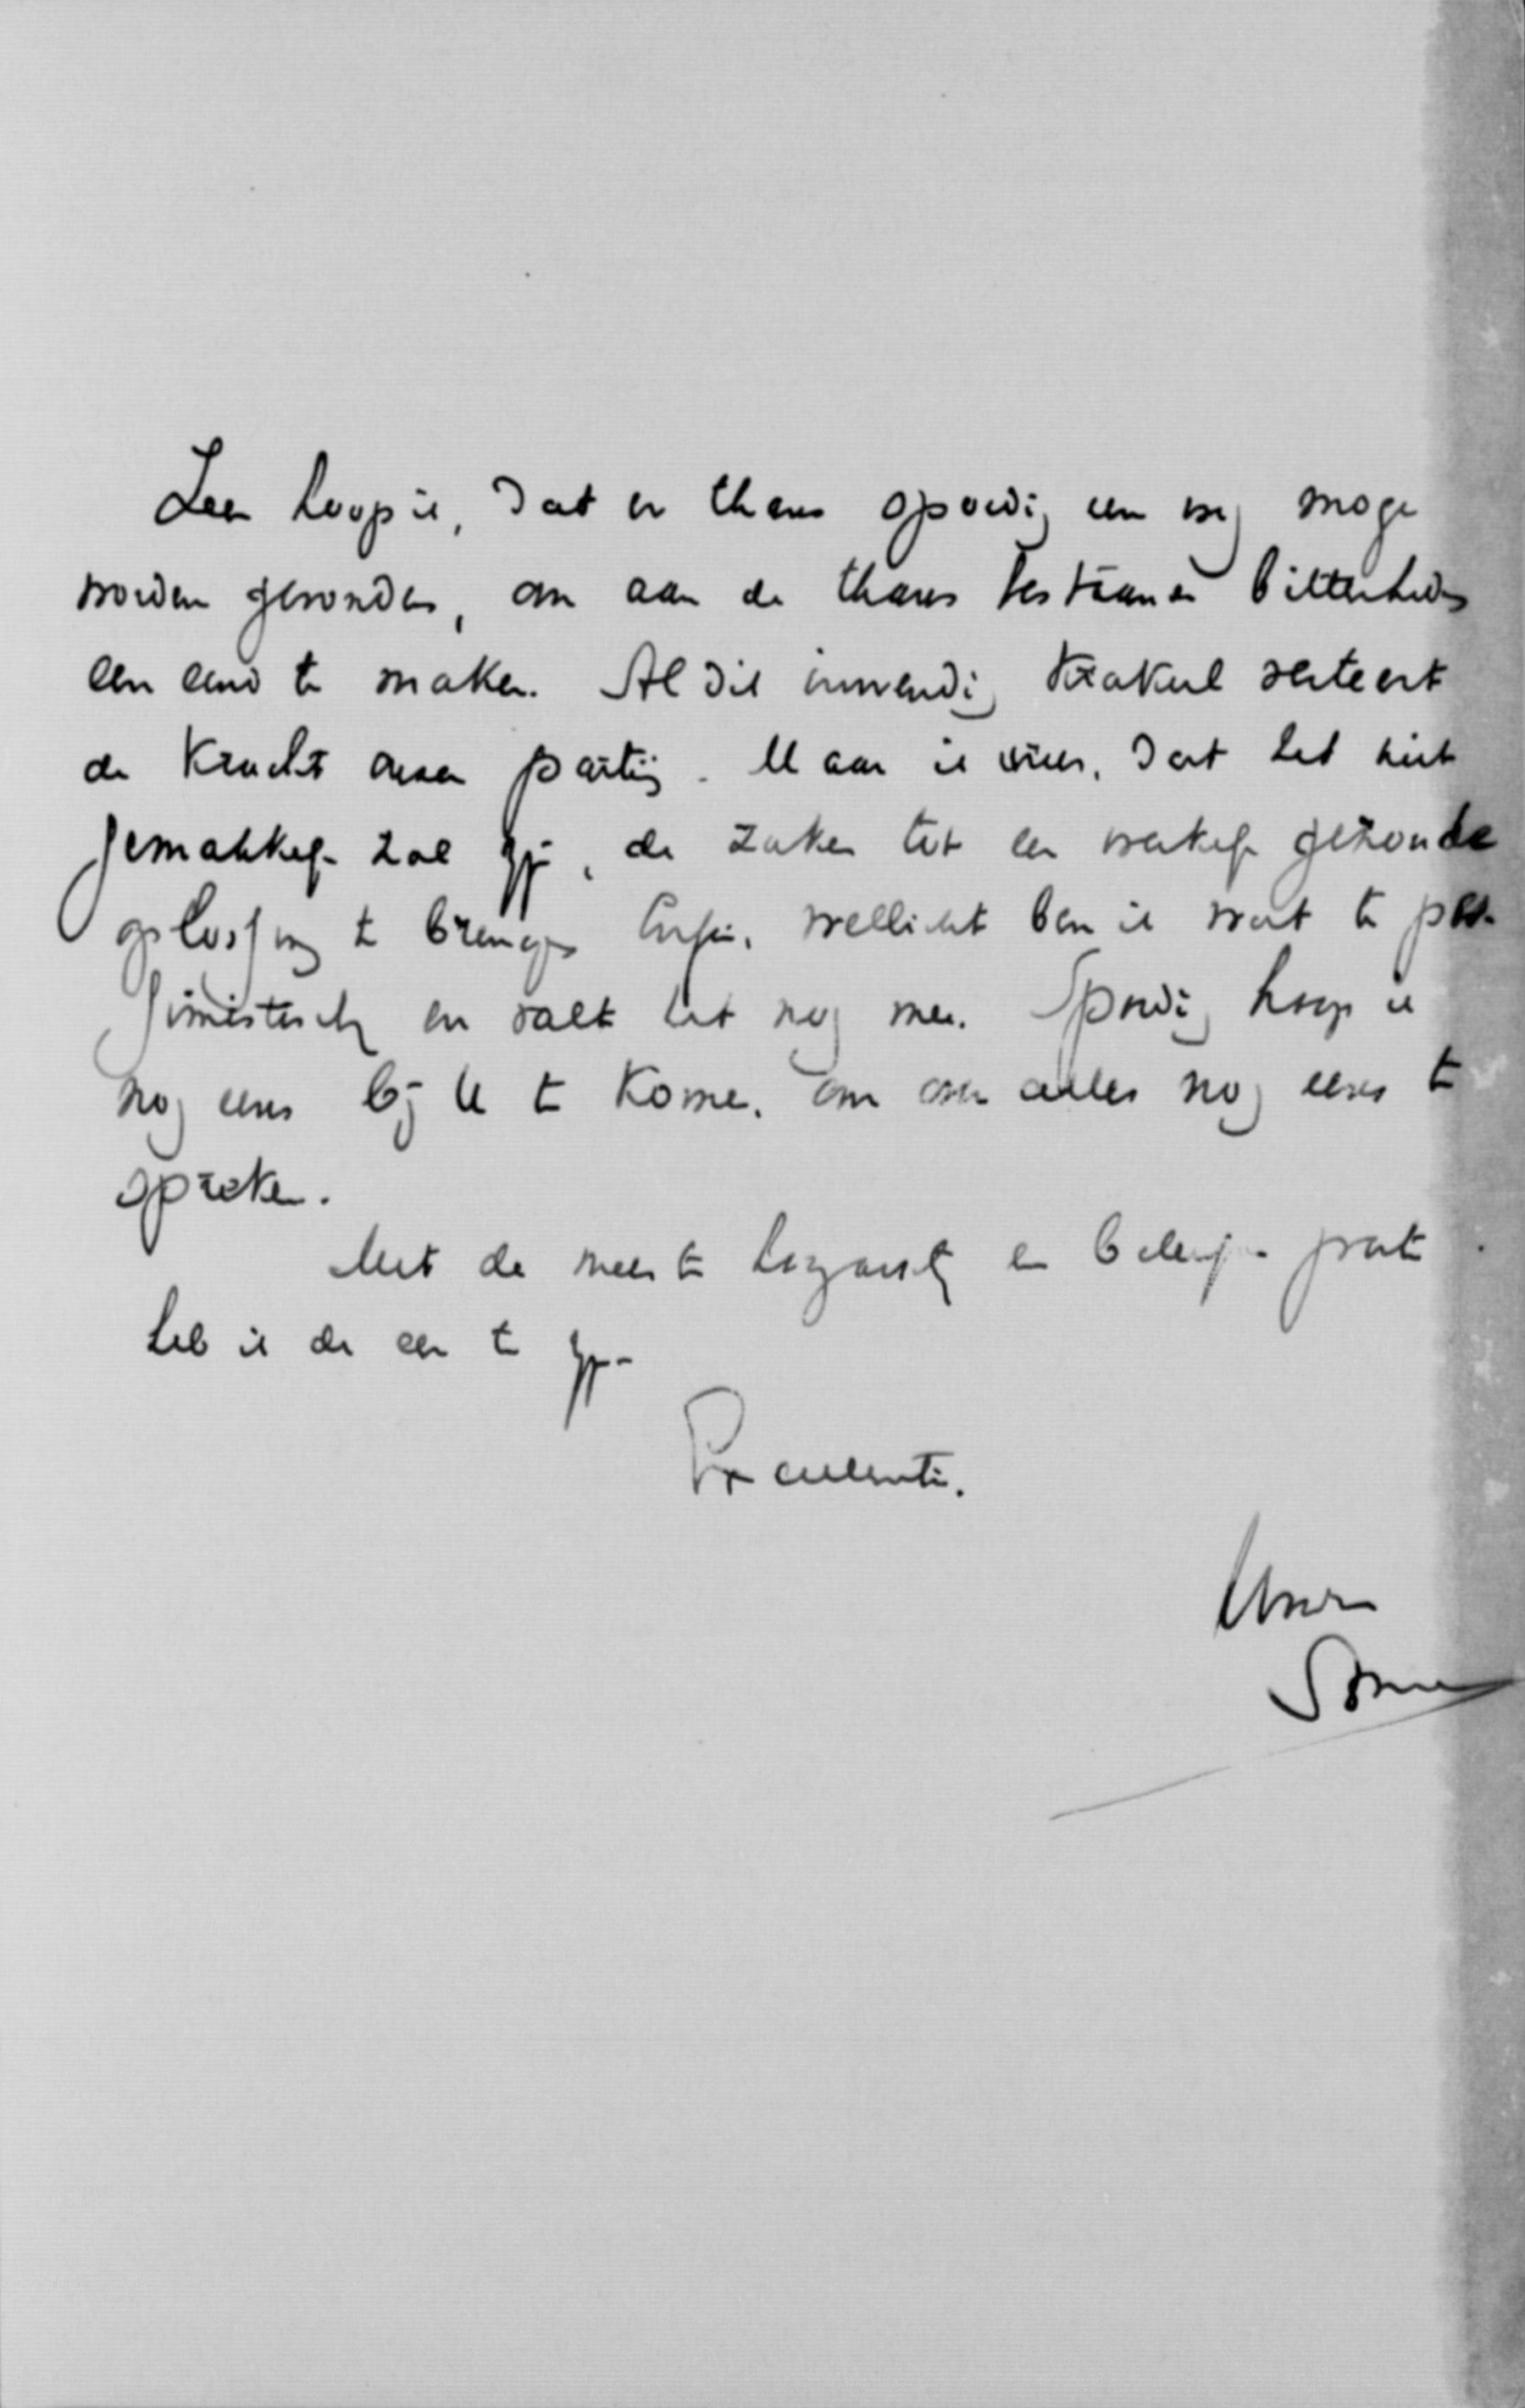 Zeer hoop ik, dat er thans spoedig een weg moge
worden gevonden, om aan de thans bestaande bitterheden
een eind te maken. Al dit inwendig krakeel verteert
de kracht onzer partij. Maar ik vrees, dat het niet
gemakkelijk zal zijn, de zaken tot een werkelijk gezonde
oplossing te brengen. Enfin, wellicht ben ik wat te pes-
simistisch en valt het nog mee. Spoedig hoop ik
nog eens bij U te komen, om over alles nog eens te
spreken.
Met de meeste hoogacht. en belangst. groet
heb ik de eer te zijn
Uwer